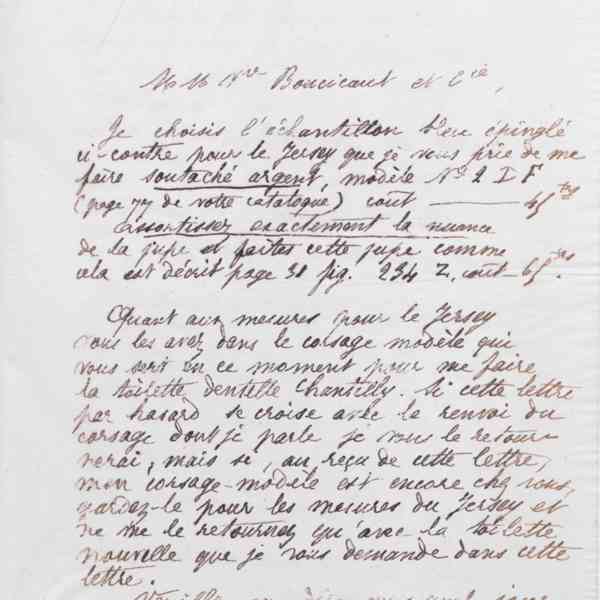 Boucicaut et Cie,
Je choisis l'échantillon bleu épinglé
ci-contre pour le Jersey que je vous prie de me
faire soutaché argent, modèle No 2 I F
(page 77 de votre catalogue) cout — 45 frs
Assortissez exactement la nuance
de la jupe et faites cette jupe comme
cela est décrit page 31 fig. 234 Z, cout — 65 frs.
Quant aux mesures pour le Jersey
vous les avez dans le corsage modèle qui
vous sert en ce moment pour me faire
la toilette dentelle Chantilly. Si cette lettre
par hasard se croise avec le renvoi du
corsage dont je parle je vous le retour-
nerai, mais si, au reçu de cette lettre,
mon corsage-modèle est encore chez vous,
gardez-le pour les mesures du Jersey et
ne me le retournez qu'avec la toilette
nouvelle que je vous demande dans cette
lettre.